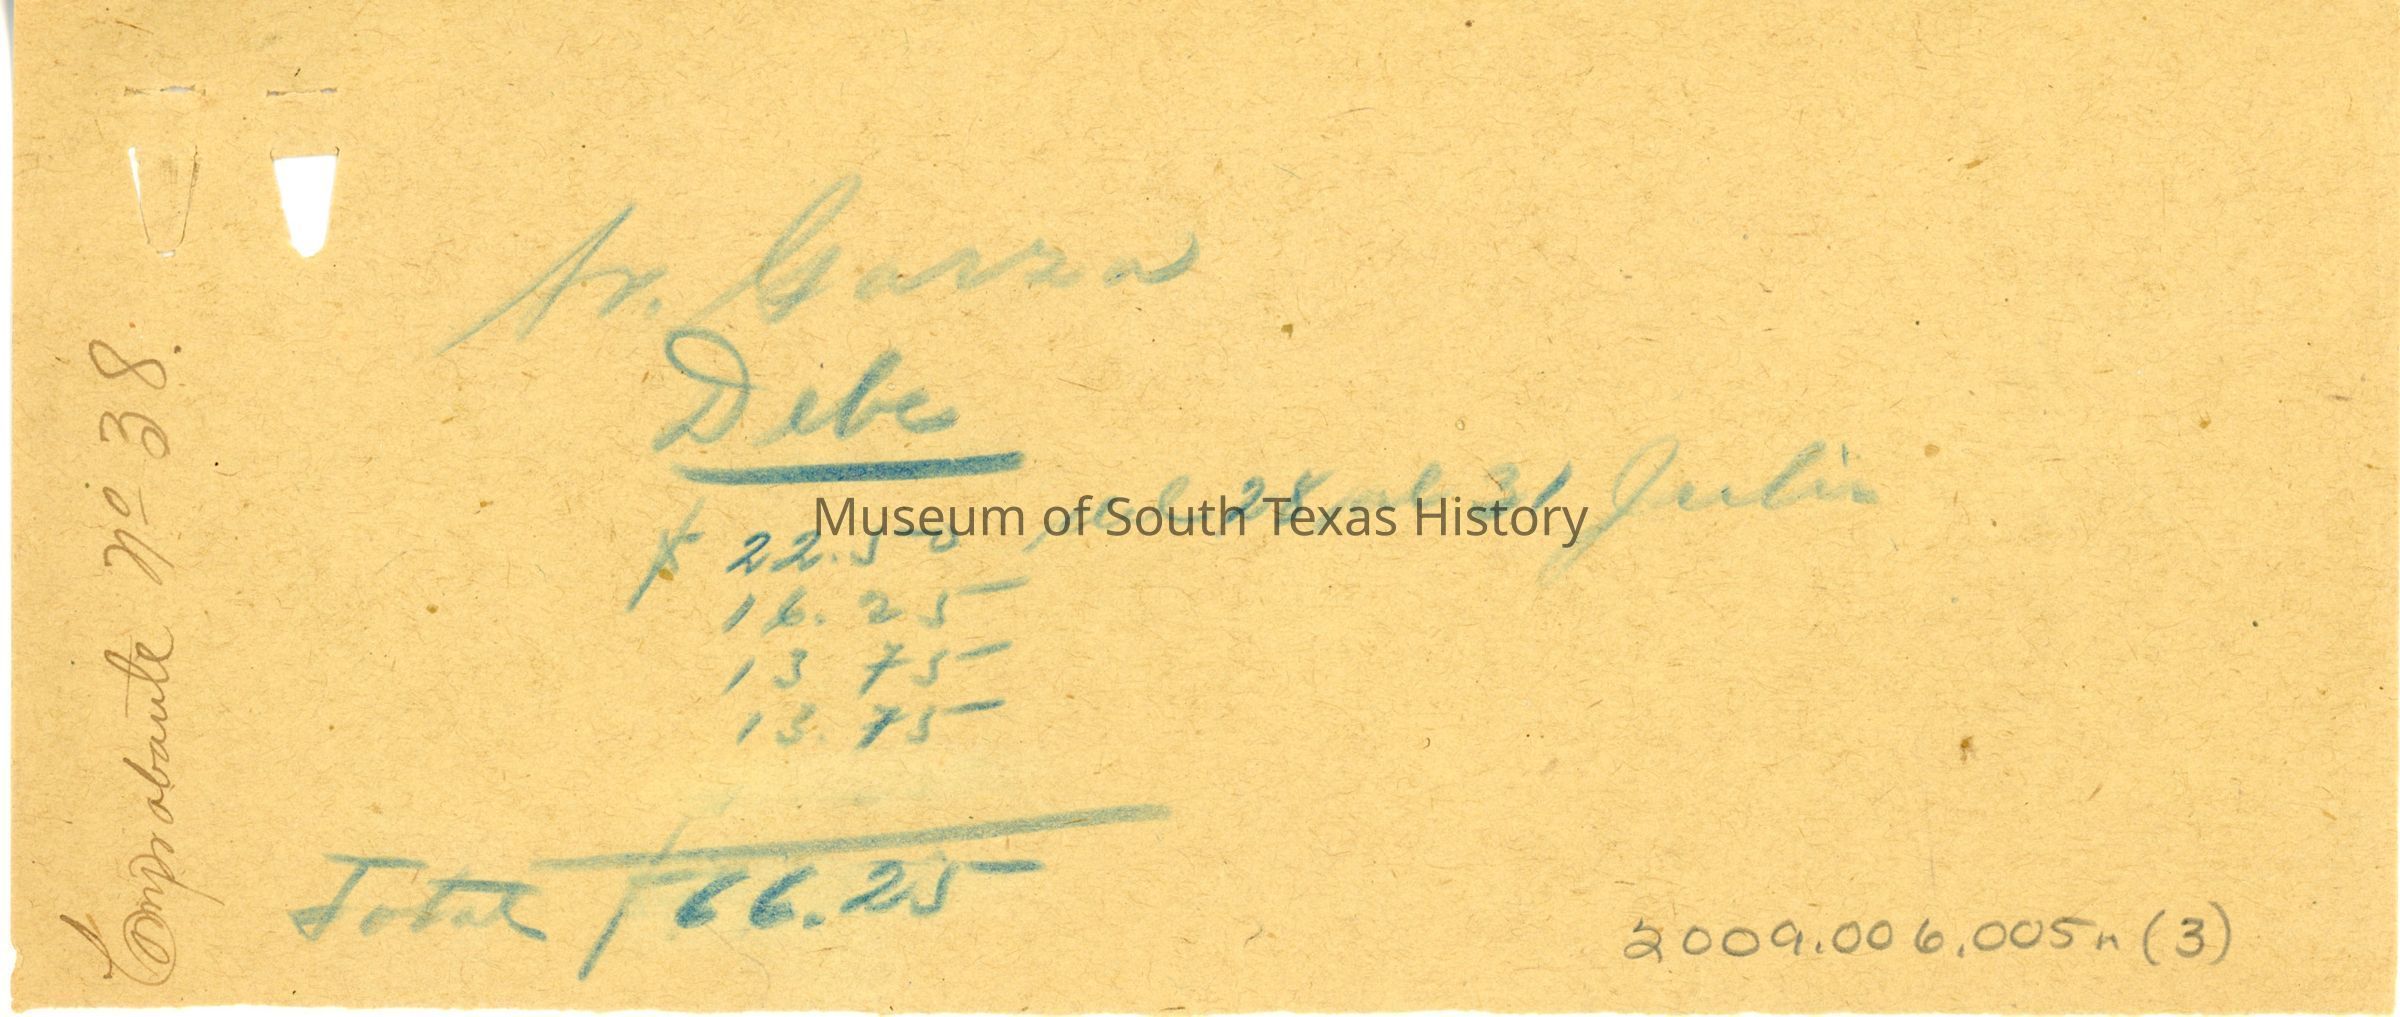 Comprobante Nº 38.
Sr. Garza
Debe
$ 22.50, del 28 al 31 Julio
16.25
13 75
13.75
Total $ 66.25
Museum of South Texas History
2009.006.005n (3)